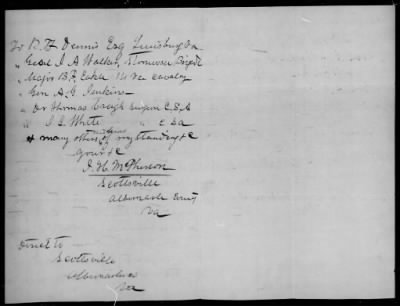 To R. F. Dennis Esq Lewisburg Va
" Genl J A Walker, Stonewall Brigde
" Major B. F. Eakle 14 Va cavalry
" Gen A. G. Jenkins
" Dr Thomas Creigh Surgeon C. S. A
" " J. L. White " C S A
& many others of my standing &c
Yours &c
J. H. McPherson
Scottsville
Albemarle County
Va
Direct to
Scottsville
Albemarle Co
Va